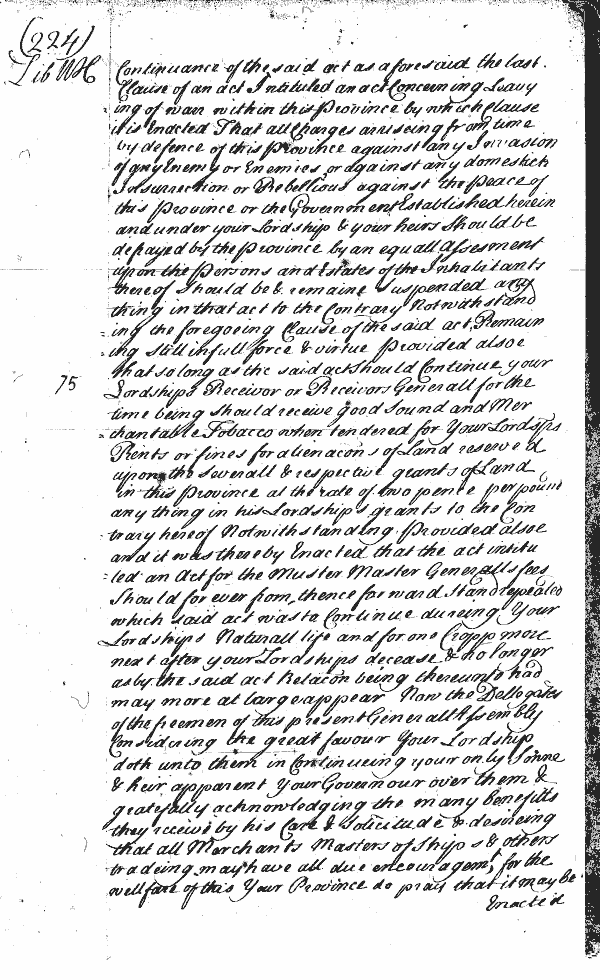 (224)
Lib WH
Continuance of the said act as aforesaid the last
Clause of an act Intituled an act Concerning Leavy
ing of warr within this Province by which Clause
it is Enacted That all Charges arriseing from time
by defence of this Province against any Invasion
of any Enemy or Enemies or against any domestick
Insurrection or Rebellious against the Peace of
this Province or the Government Established herein
and under your Lordship & your heirs Should be
defrayed by the Province by an equall Assesment
upon the Persons and Estates of the Inhabitants
thereof Should be & remaine Suspended any
thing in that act to the Contrary Notwithstand
ing the foregoeing Clause of the said act Remain
ing Still in full force & virtue Provided alsoe
that so long as the said act Should Continue your
75
Lordships Receivor or Receivors Generall for the
time being Should receive good Sound and Mer
chantable Tobacco when tendered for Your Lordships
Rents or fines for alienacons of Land reserved
upon the severall & respective grants of Land
in this Province at the rate of two pence per pound
any thing in his Lordships grants to the Con
trary hereof Notwithstanding Provided alsoe
and it was thereby Enacted that the act intitu
led an Act for the Muster Master Generalls fees
Should for ever from thence forward Stand repealed
which said act was to Continue dureing Your
Lordships Naturall life and for one Cropp more
next after your Lordships decease & no longer
as by the said act Relacon being thereunto had
may more at large appear Now the Dellegates
of the freemen of this present Generall Assembly
Considering the great favour Your Lordship
doth unto them in Continueing your only Sonne
& heir apparent Your Governour over them &
gratefully acknowledging the many benefitts
they receive by his Care & Solicitude & desireing
that all Merchants Masters of Ships & others
tradeing may have all due encouragemt for the
wellfare of this Your Province do pray that it may be
Enacted